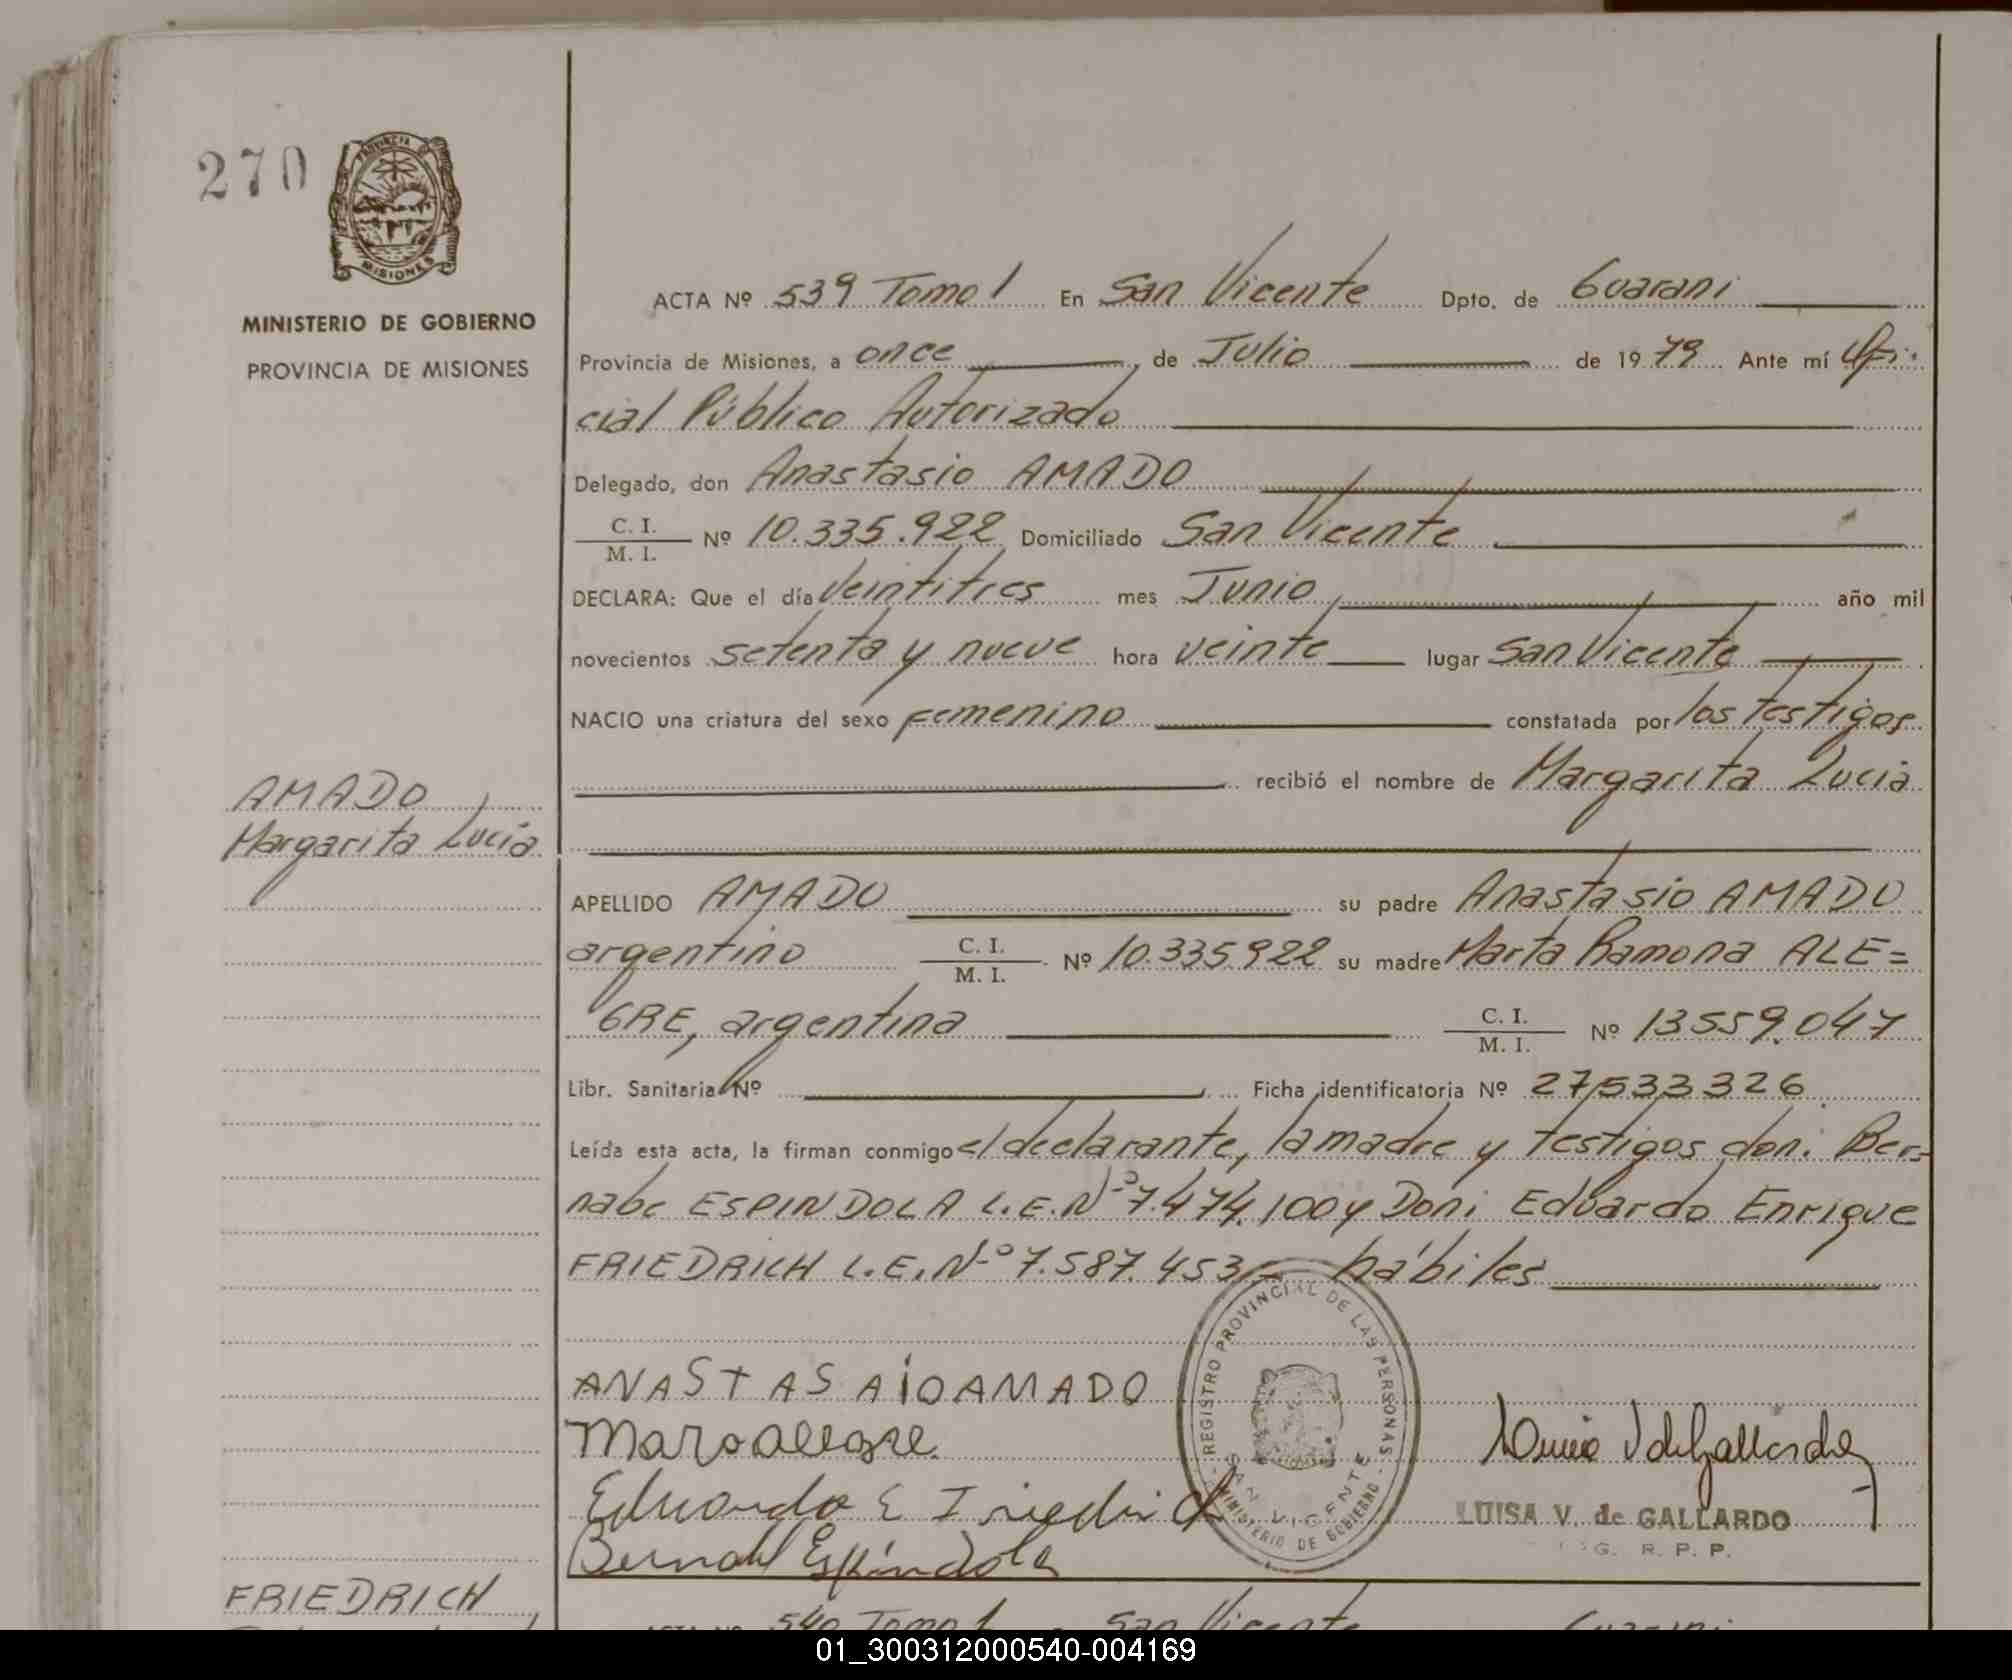 270
PROVINCIA DE
MISIONES
MINISTERIO DE GOBIERNO
PROVINCIA DE MISIONES
ACTA Nº 539 Tomo 1 En San Vicente Dpto. de Guarani
Provincia de Misiones, a once de Julio de 1979 Ante mí Ofi-
cial Público Autorizado
Delegado, don Anastasio AMADO
C. I.
M. I. Nº 10.335.922 Domiciliado San Vicente
DECLARA: Que el día Veintitres mes Junio año mil
novecientos setenta y nueve hora veinte lugar San Vicente
NACIO una criatura del sexo Femenino constatada por los testigos
recibió el nombre de Margarita Lucia
AMADO
Margarita Lucia
APELLIDO AMADO su padre Anastasio AMADO
argentino C. I.
M. I. Nº 10.335.922 su madre Marta Ramona ALE=
GRE, argentina C. I.
M. I. Nº 13.559.047
Libr. Sanitaria Nº Ficha identificatoria Nº 27.533326
Leída esta acta, la firman conmigo el declarante, la madre y testigos don: Ber=
nabe ESPINDOLA L.E.Nº 7.474.100 y Don: Eduardo Enrique
FRIEDRICH L.E.Nº 7.587.453 - hábiles
ANASTASAIOAMADO
Eduardo E Friedrich
Espíndola
REGISTRO PROVINCIAL DE LAS PERSONAS
SAN VICENTE
MINISTERIO DE GOBIERNO
LUISA V. de GALLARDO
G. R. P. P.
FRIEDRICH
ACTA Nº 540 Tomo 1 San Vicente Guarani
01_300312000540-004169